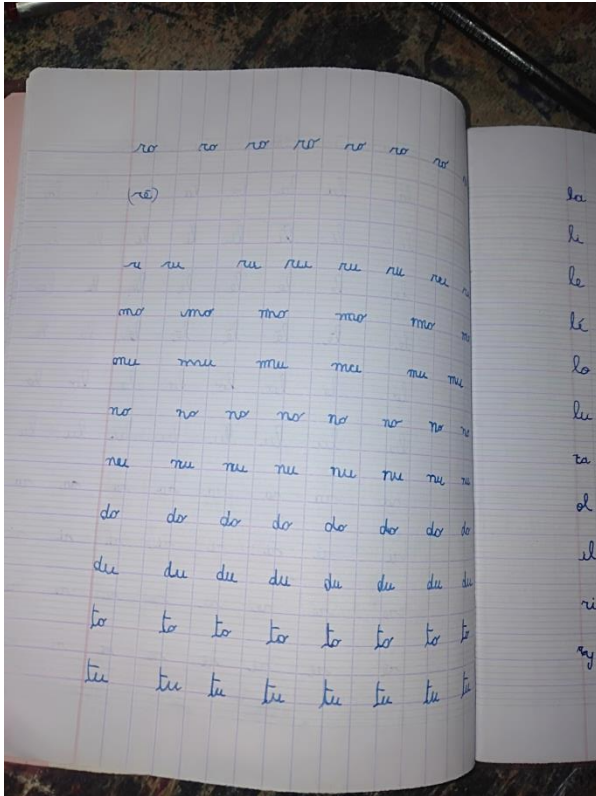 ro ro ro ro ro ro ro
(ré)
r ru ru ru ru ru ru ru
mo mo mo mo mo mo
mu mu mu mu mu mu
no no no no no no no no
nu nu nu nu nu nu nu nu
do do do do do do do do
du du du du du du du du
to to to to to to to to
tu tu tu tu tu tu tu tu
la
li
le
lé
lo
lu
ta
ol
il
ri